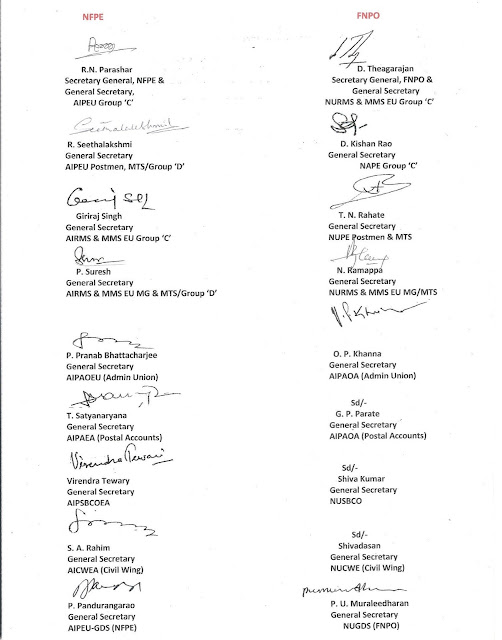 NFPE
R.N. Parashar
Secretary General, NFPE &
General Secretary,
AIPEU Group ‘C’
Seethalakshmi
R. Seethalakshmi
General Secretary
AIPEU Postmen, MTS/Group ‘D’
Giriraj Singh
General Secretary
AIRMS & MMS EU Group ‘C’
P. Suresh
General Secretary
AIRMS & MMS EU MG & MTS/Group ‘D’
P. Pranab Bhattacharjee
General Secretary
AIPAOEU (Admin Union)
T. Satyanaryana
General Secretary
AIPAEA (Postal Accounts)
Virendra Tewari
Virendra Tewary
General Secretary
AIPSBCOEA
S. A. Rahim
General Secretary
AICWEA (Civil Wing)
P. Pandurangarao
General Secretary
AIPEU-GDS (NFPE)
FNPO
D. Theagarajan
Secretary General, FNPO &
General Secretary
NURMS & MMS EU Group ‘C’
D. Kishan Rao
General Secretary
NAPE Group ‘C’
T. N. Rahate
General Secretary
NUPE Postmen & MTS
N. Ramappa
General Secretary
NURMS & MMS EU MG/MTS
O. P. Khanna
General Secretary
AIPAOA (Admin Union)
Sd/-
G. P. Parate
General Secretary
AIPAOA (Postal Accounts)
Sd/-
Shiva Kumar
General Secretary
NUSBCO
Sd/-
Shivadasan
General Secretary
NUCWE (Civil Wing)
P. U. Muraleedharan
General Secretary
NUGDS (FNPO)